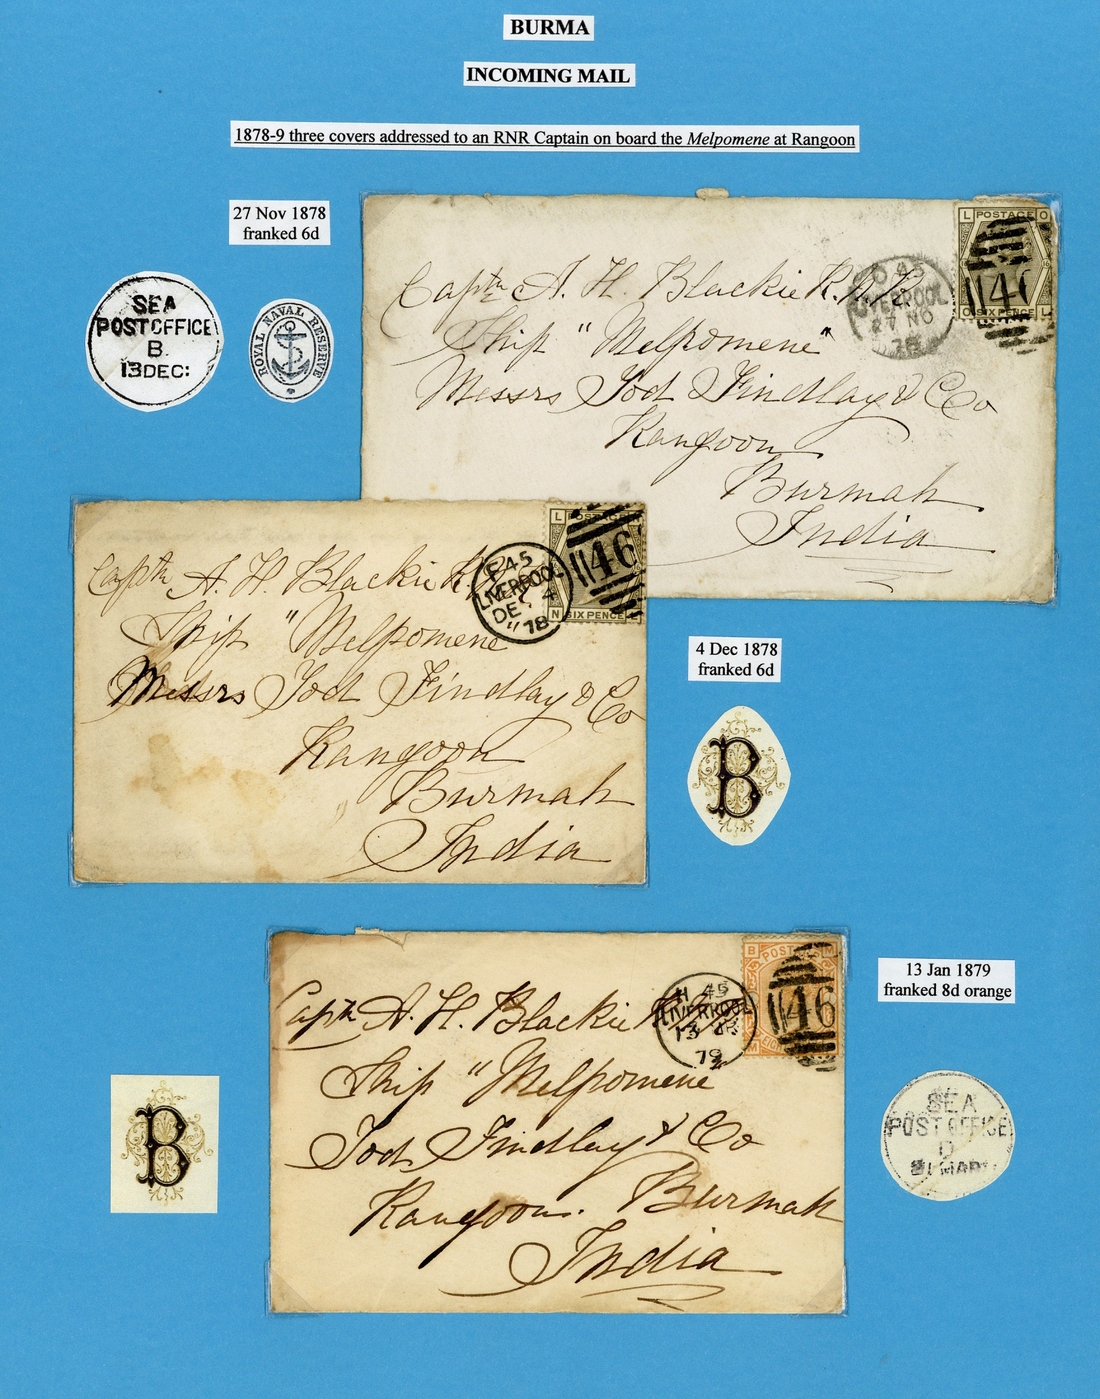 BURMA
INCOMING MAIL
1878-9 three covers addressed to an RNR Captain on board the Melpomene at Rangoon
27 Nov 1878
franked 6d
SEA
POST OFFICE
B
13 DEC:
ROYAL NAVAL RESERVE
Captn A. H. Blackie R.N.R.
Ship "Melpomene"
Messrs Tod Findlay & Co
Rangoon
Burmah
India
45
LIVERPOOL
27 NO
78
L POSTAGE O
O SIX PENCE L
146
Captn A. H. Blackie R.
Ship "Melpomene
Messrs Tod Findlay & Co
Rangoon
Burmah
India
F 45
LIVERPOOL
DE 4
78
L POSTAGE
N SIX PENCE
146
4 Dec 1878
franked 6d
B
Captn A. H. Blackie
Ship "Melpomene"
Tod Findlay & Co
Rangoon. Burmah
India
H 45
LIVERPOOL
13
79
B POSTAGE M
M
146
13 Jan 1879
franked 8d orange
B
SEA
POST OFFICE
D
MAR